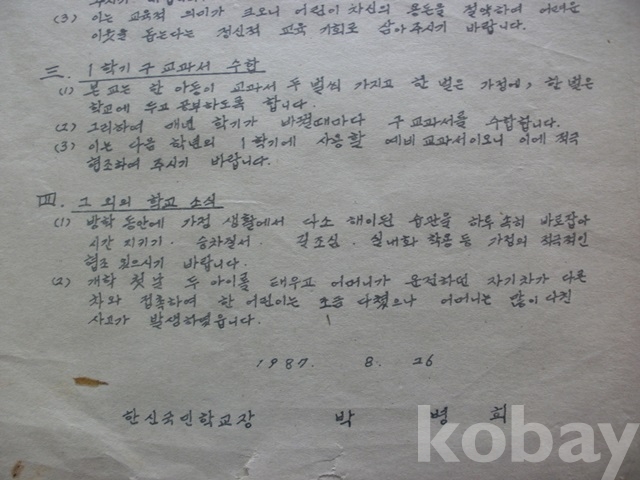 (3) 이는 교육적 의미가 크오니 어린이 자신의 용돈을 절약하여 어려운
이웃을 돕는다는 정신적 교육 기회로 삼아 주시기 바랍니다.
三. 1학기 구 교과서 수합
(1) 본교는 한 아동이 교과서 두 벌씩 가지고 한 벌은 가정에, 한 벌은
학교에 두고 공부하도록 합니다.
(2) 그리하여 매년 학기가 바뀔때마다 구 교과서를 수합합니다.
(3) 이는 다음 학년의 1학기에 사용할 예비 교과서이오니 이에 적극
협조하여 주시기 바랍니다.
四. 그 외의 학교 소식
(1) 방학 동안에 가정 생활에서 다소 해이된 습관을 하루 속히 바로잡아
시간 지키기. 승차질서. 길조심. 실내화 착용 등 가정의 적극적인
협조 있으시기 바랍니다.
(2) 개학 첫날 두 아이를 태우고 어머니가 운전하던 자기차가 다른
차와 접촉하여 한 어린이는 조금 다쳤으나 어머니는 많이 다친
사고가 발생하였읍니다.
1987. 8. 26
한신국민학교장 박 병 희
kobay